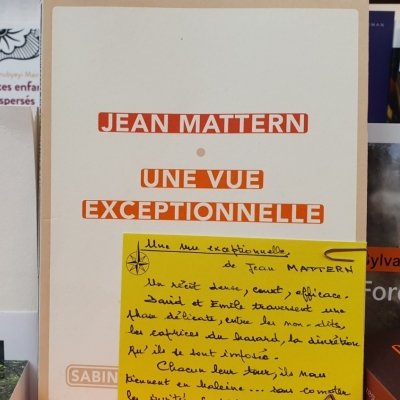 ces enfan
spersés
JEAN MATTERN
UNE VUE
EXCEPTIONNELLE
SABIN
Sylva
Forê
Une vue exceptionnelle.
de Jean MATTERN
Un récit dense, court, efficace.
David et Emile traversent une
phase délicate, entre les non-dits,
les caprices du hasard, la discrétion
qu'ils se sont imposée.
Chacun leur tour, ils nous
tiennent en haleine... sans compter
les invités